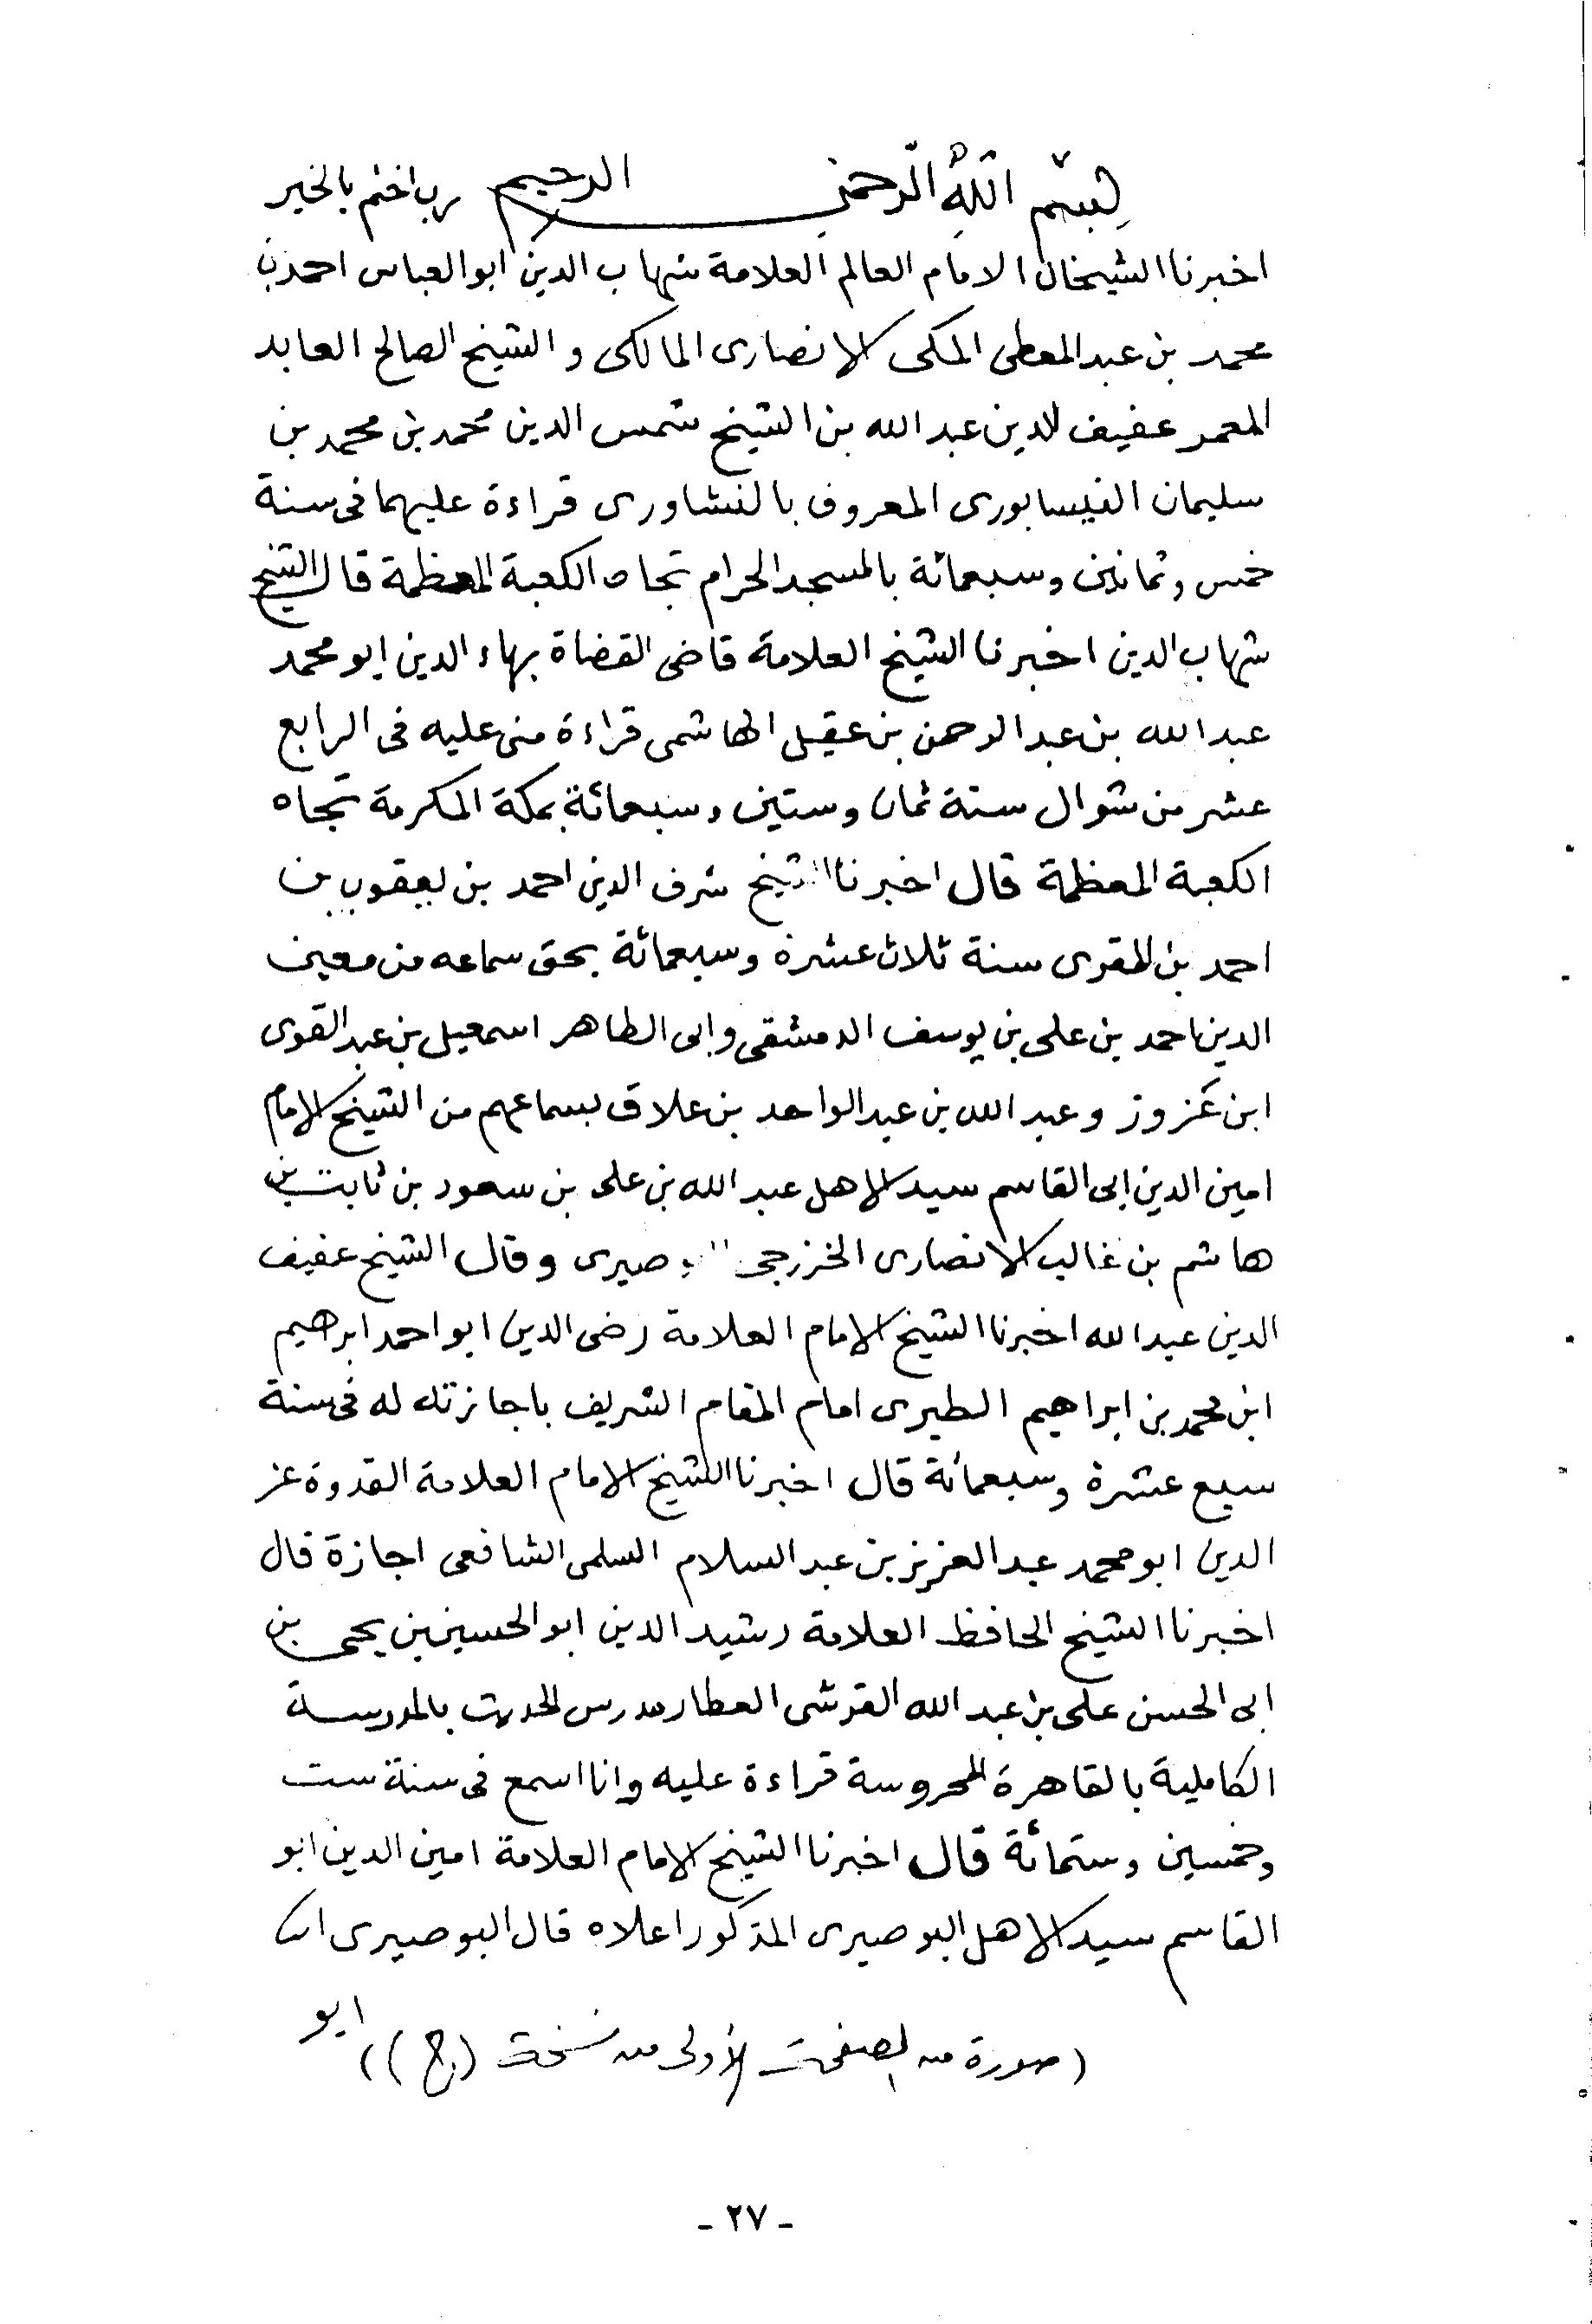 بسم الله الرحمن الرحيم رب اختم بالخير
اخبرنا الشيخان الامام العالم العلامة شهاب الدين ابو العباس احمد بن
محمد بن عبد المعطى المكى الانصارى المالكى و الشيخ الصالح العابد
المعمر عفيف الدين عبد الله بن الشيخ شمس الدين محمد بن محمد بن
سليمان النيسابورى المعروف بالنشاورى قراءة عليهما فى سنة
خمس وثمانين وسبعمائة بالمسجد الحرام تجاه الكعبة المعظمة قال الشيخ
شهاب الدين اخبرنا الشيخ العلامة قاضى القضاة بهاء الدين ابو محمد
عبد الله بن عبد الرحمن بن عقيل الهاشمى قراءة منى عليه فى الرابع
عشر من شوال سنة ثمان وستين وسبعمائة بمكة المكرمة تجاه
الكعبة المعظمة قال اخبرنا الشيخ شرف الدين احمد بن يعقوب بن
احمد بن المقرى سنة ثلاث عشرة وسبعمائة بحق سماعه من معين
الدين احمد بن على بن يوسف الدمشقى وابى الطاهر اسمعيل بن عبد القوى
ابن عزوز وعبد الله بن عبد الواحد بن علاق بسماعهم من الشيخ الامام
امين الدين ابى القاسم سيد الاهل عبد الله بن على بن سعود بن ثابت بن
هاشم بن غالب الانصارى الخزرجى البوصيرى وقال الشيخ عفيف
الدين عبد الله اخبرنا الشيخ الامام العلامة رضى الدين ابو احمد ابرهيم
ابن محمد بن ابراهيم الطبرى امام المقام الشريف باجازته له فى سنة
سبع عشرة وسبعمائة قال اخبرنا الشيخ الامام العلامة القدوة عز
الدين ابو محمد عبد العزيز بن عبد السلام السلمى الشافعى اجازة قال
اخبرنا الشيخ الحافظ العلامة رشيد الدين ابو الحسين بن يحيى بن
ابى الحسن على بن عبد الله القرشى العطار مدرس الحديث بالمدرسة
الكاملية بالقاهرة المحروسة قراءة عليه وانا اسمع فى سنة ست
وخمسين وستمائة قال اخبرنا الشيخ الامام العلامة امين الدين ابو
القاسم سيد الاهل البوصيرى المذكور اعلاه قال البوصيرى انا
ابو
(صورة من الصفحة الأولى من نسخة (ج))
- ٢٧ -